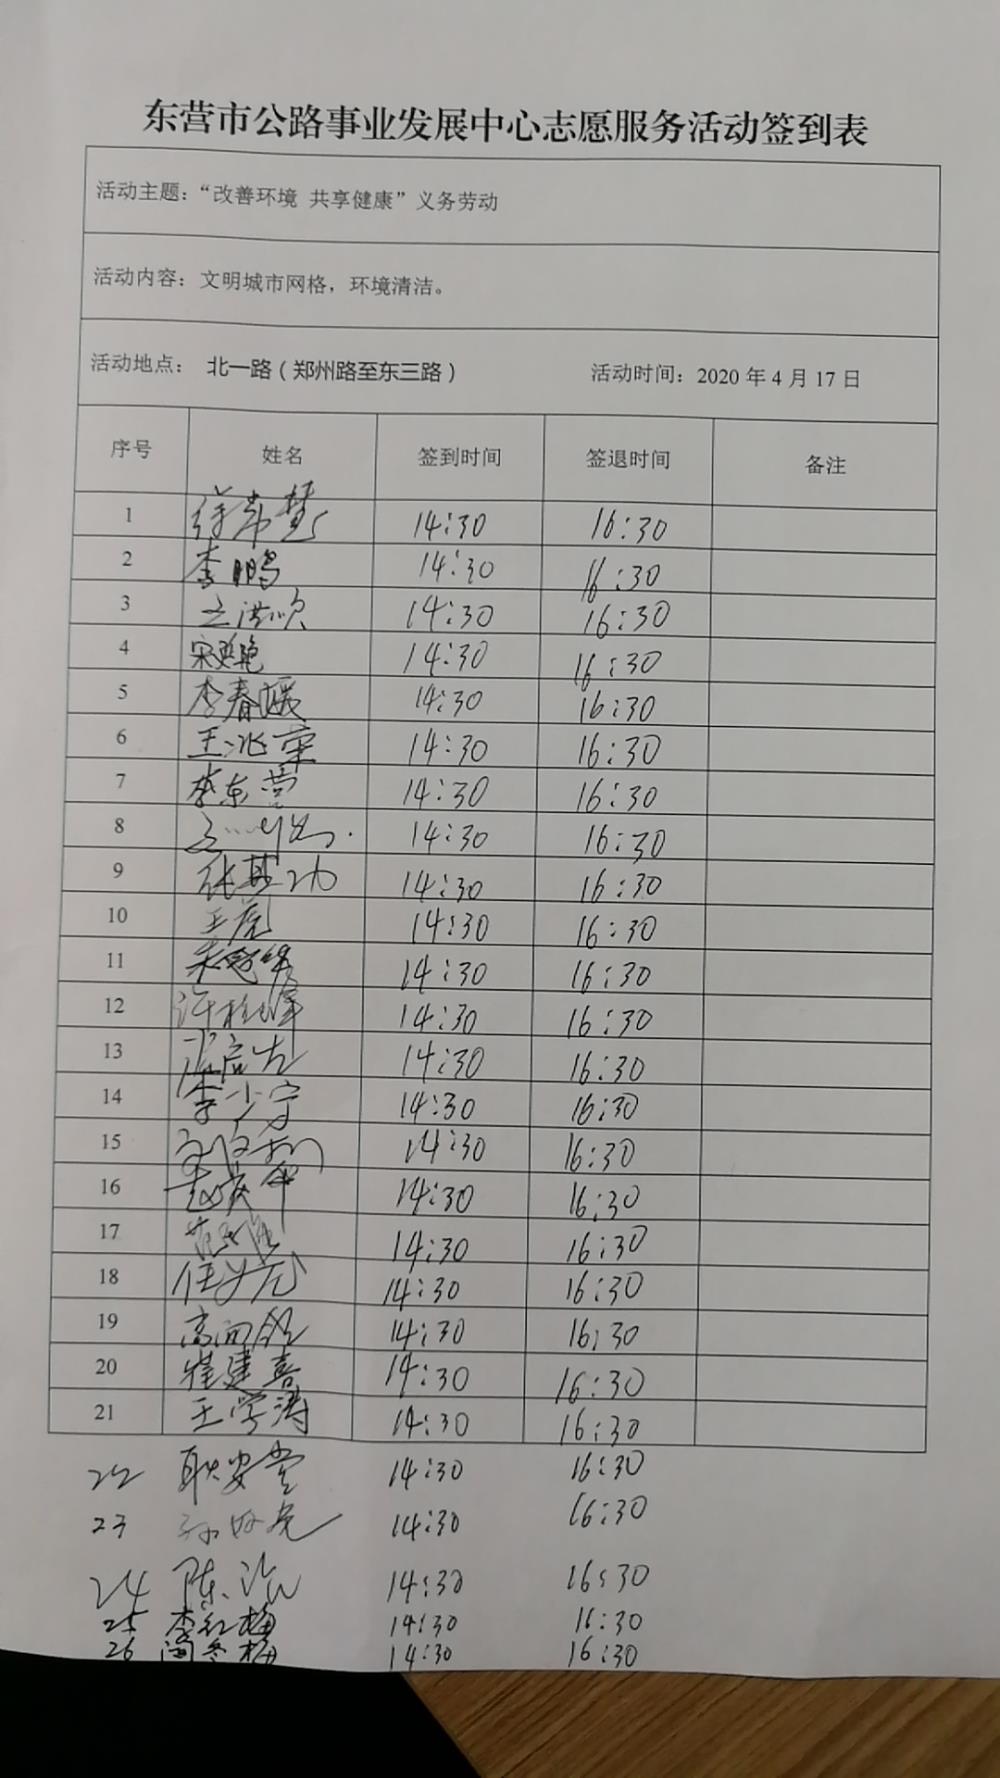 东营市公路事业发展中心志愿服务活动签到表
活动主题：“改善环境 共享健康”义务劳动
活动内容：文明城市网格，环境清洁。
活动地点： 北一路（郑州路至东三路） 活动时间：2020 年 4 月 17 日
序号 姓名 签到时间 签退时间 备注
1 14:30 16:30
2 李鹏 14:30 16:30
3 14:30 16:30
4 14:30 16:30
5 李春媛 14:30 16:30
6 王兆荣 14:30 16:30
7 李东营 14:30 16:30
8 14:30 16:30
9 张其功 14:30 16:30
10 王虎 14:30 16:30
11 14:30 16:30
12 许桂峰 14:30 16:30
13 14:30 16:30
14 李少宁 14:30 16:30
15 14:30 16:30
16 赵庆军 14:30 16:30
17 14:30 16:30
18 14:30 16:30
19 14:30 16:30
20 崔建喜 14:30 16:30
21 王学涛 14:30 16:30
22 耿安堂 14:30 16:30
23 14:30 16:30
24 陈 14:30 16:30
25 李红梅 14:30 16:30
26 闫冬梅 14:30 16:30